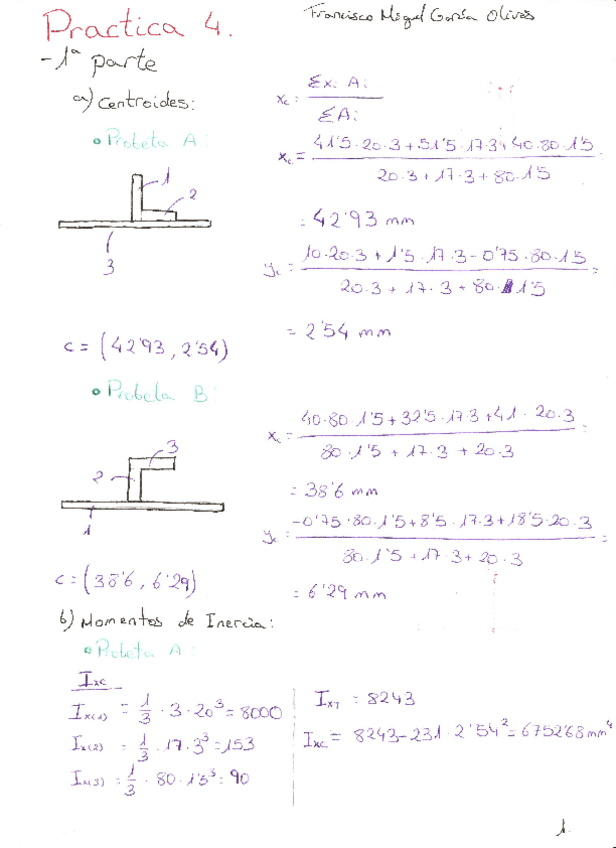 Practica 4.
Francisco Miguel García Olivos
- 1ª parte
a) Centroides:
• Probeta A:
1
2
3
c = (42'93, 2'54)
xc = Σxi Ai / ΣAi
xc = 41'5·20·3 + 51'5·17·3 + 40·80·1'5 / 20·3 + 17·3 + 80·1'5
= 42'93 mm
yc = 10·20·3 + 1'5·17·3 - 0'75·80·1'5 / 20·3 + 17·3 + 80·1'5 =
= 2'54 mm
• Probeta B:
3
2
1
c = (38'6, 6'29)
xc = 40·80·1'5 + 32'5·17·3 + 41·20·3 / 80·1'5 + 17·3 + 20·3 =
= 38'6 mm
yc = -0'75·80·1'5 + 8'5·17·3 + 18'5·20·3 / 80·1'5 + 17·3 + 20·3 =
= 6'29 mm
b) Momentos de Inercia:
• Probeta A:
Ixc
Ix(1) = 1/3 · 3·20³ = 8000
Ix(2) = 1/3 · 17·3³ = 153
Ix(3) = 1/3 · 80·1'5³ = 90
IxT = 8243
Ixc = 8243 - 231·2'54² = 6752'68 mm⁴
1.